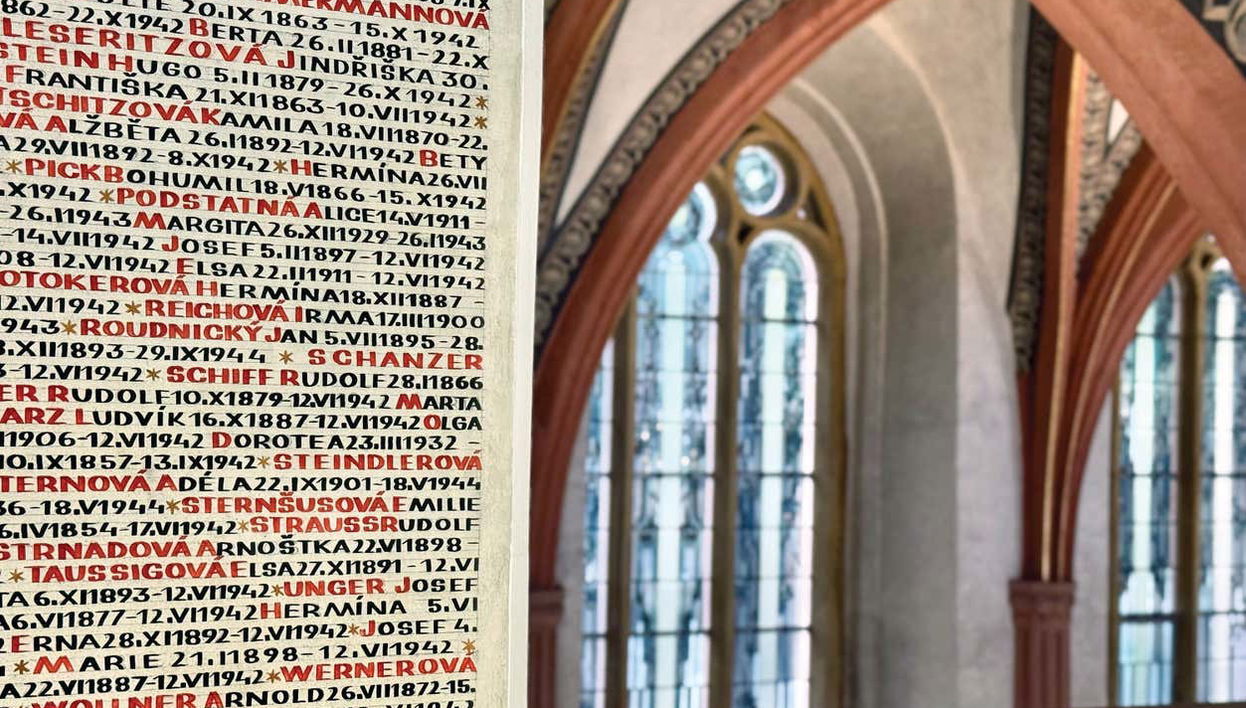 20.IX 1863-15.X 1942
1862-22.X1942 BERTA 26.II1881-22.X
LESERITZOVÁ JINDŘIŠKA 30.
STEIN HUGO 5.II 1879-26.X 1942*
FRANTIŠKA 21.XI1863-10.VIII1942*
TSCHITZOVÁ KAMILA 18.VII1870-22.
VÁ ALŽBĚTA 26.I1892-12.VI1942 BETY
A29.VIII1892-8.X1942*HERMÍNA26.VII
*PICK BOHUMIL18.V1866-15.X1942
.X1942 *PODSTATNÁ ALICE14.V1911-
-26.I1943 MARGITA26.XII1929-26.I1943
-14.VII1942 JOSEF5.II1897-12.VI1942
08-12.VI1942 ELSA 22.II1911-12.VI1942
OTOKEROVÁ HERMÍNA18.XII1887 -
12.VI1942 *REICHOVÁ IRMA17.III1900
943*ROUDNICKÝ JAN 5.VII1895-28.
.XII1893-29.IX1944 * SCHANZER
-12.VI1942* SCHIFF RUDOLF28.I1866
ER RUDOLF10.X1879-12.VI1942 MARTA
ARZ LUDVÍK 16.X1887-12.VI1942 OLGA
I1906-12.VI1942 DOROTEA23.III1932 -
10.IX1857-13.IX1942*STEINDLEROVÁ
TERNOVÁ ADÉLA22.IX1901-18.V1944
36-18.V1944*STERNŠUSOVÁ EMILIE
6.IV1854-17.VI1942*STRAUSS RUDOLF
STRNADOVÁ ARNOŠTKA22.VI1898-
*TAUSSIGOVÁ ELSA27.XI1891-12.VI
TA 6.XI1893-12.VI1942*UNGER JOSEF
A6.VI1877-12.VI1942 HERMÍNA 5.VI
ERNA28.XI1892-12.VI1942*JOSEF 4.
*MARIE 21.I1898-12.VI1942 *
A22.VI1887-12.VI1942*WERNEROVÁ
*WOLLNER ARNOLD26.VII1872-15.